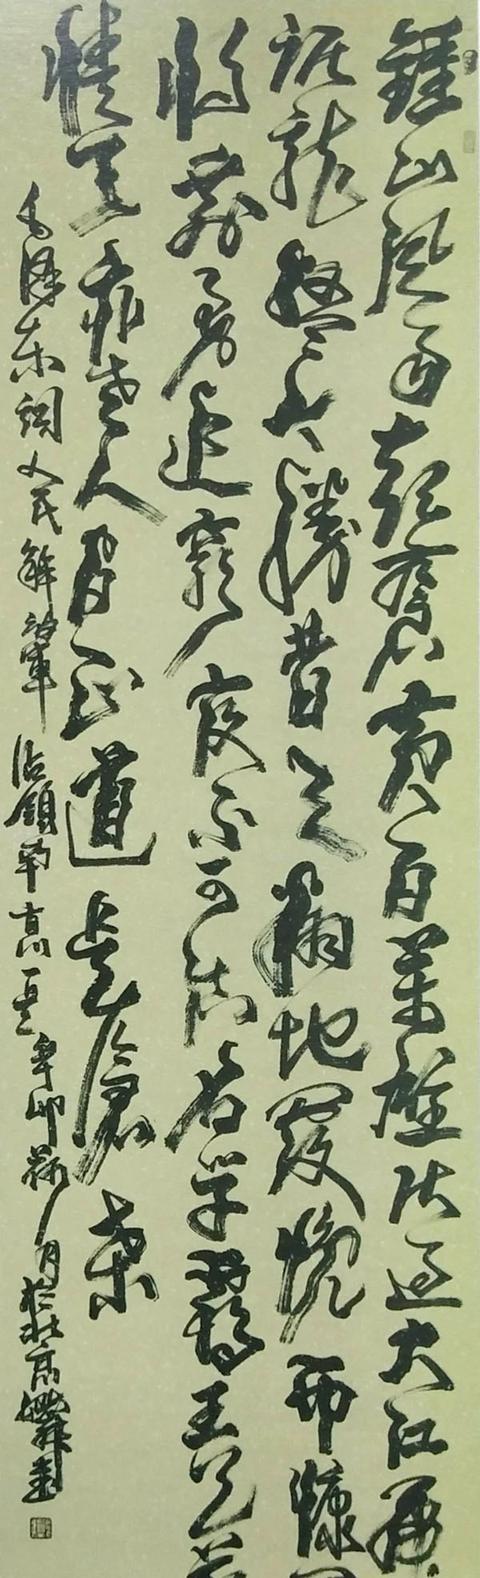 鍾山風雨起蒼黃百萬雄師過大江虎
踞龍盤今勝昔天翻地覆慨而慷
將剩勇追窮寇不可沽名學霸王天
情天亦老人間正道是滄桑
毛澤東詞人民解放軍佔領南京 辛卯秋月於北京